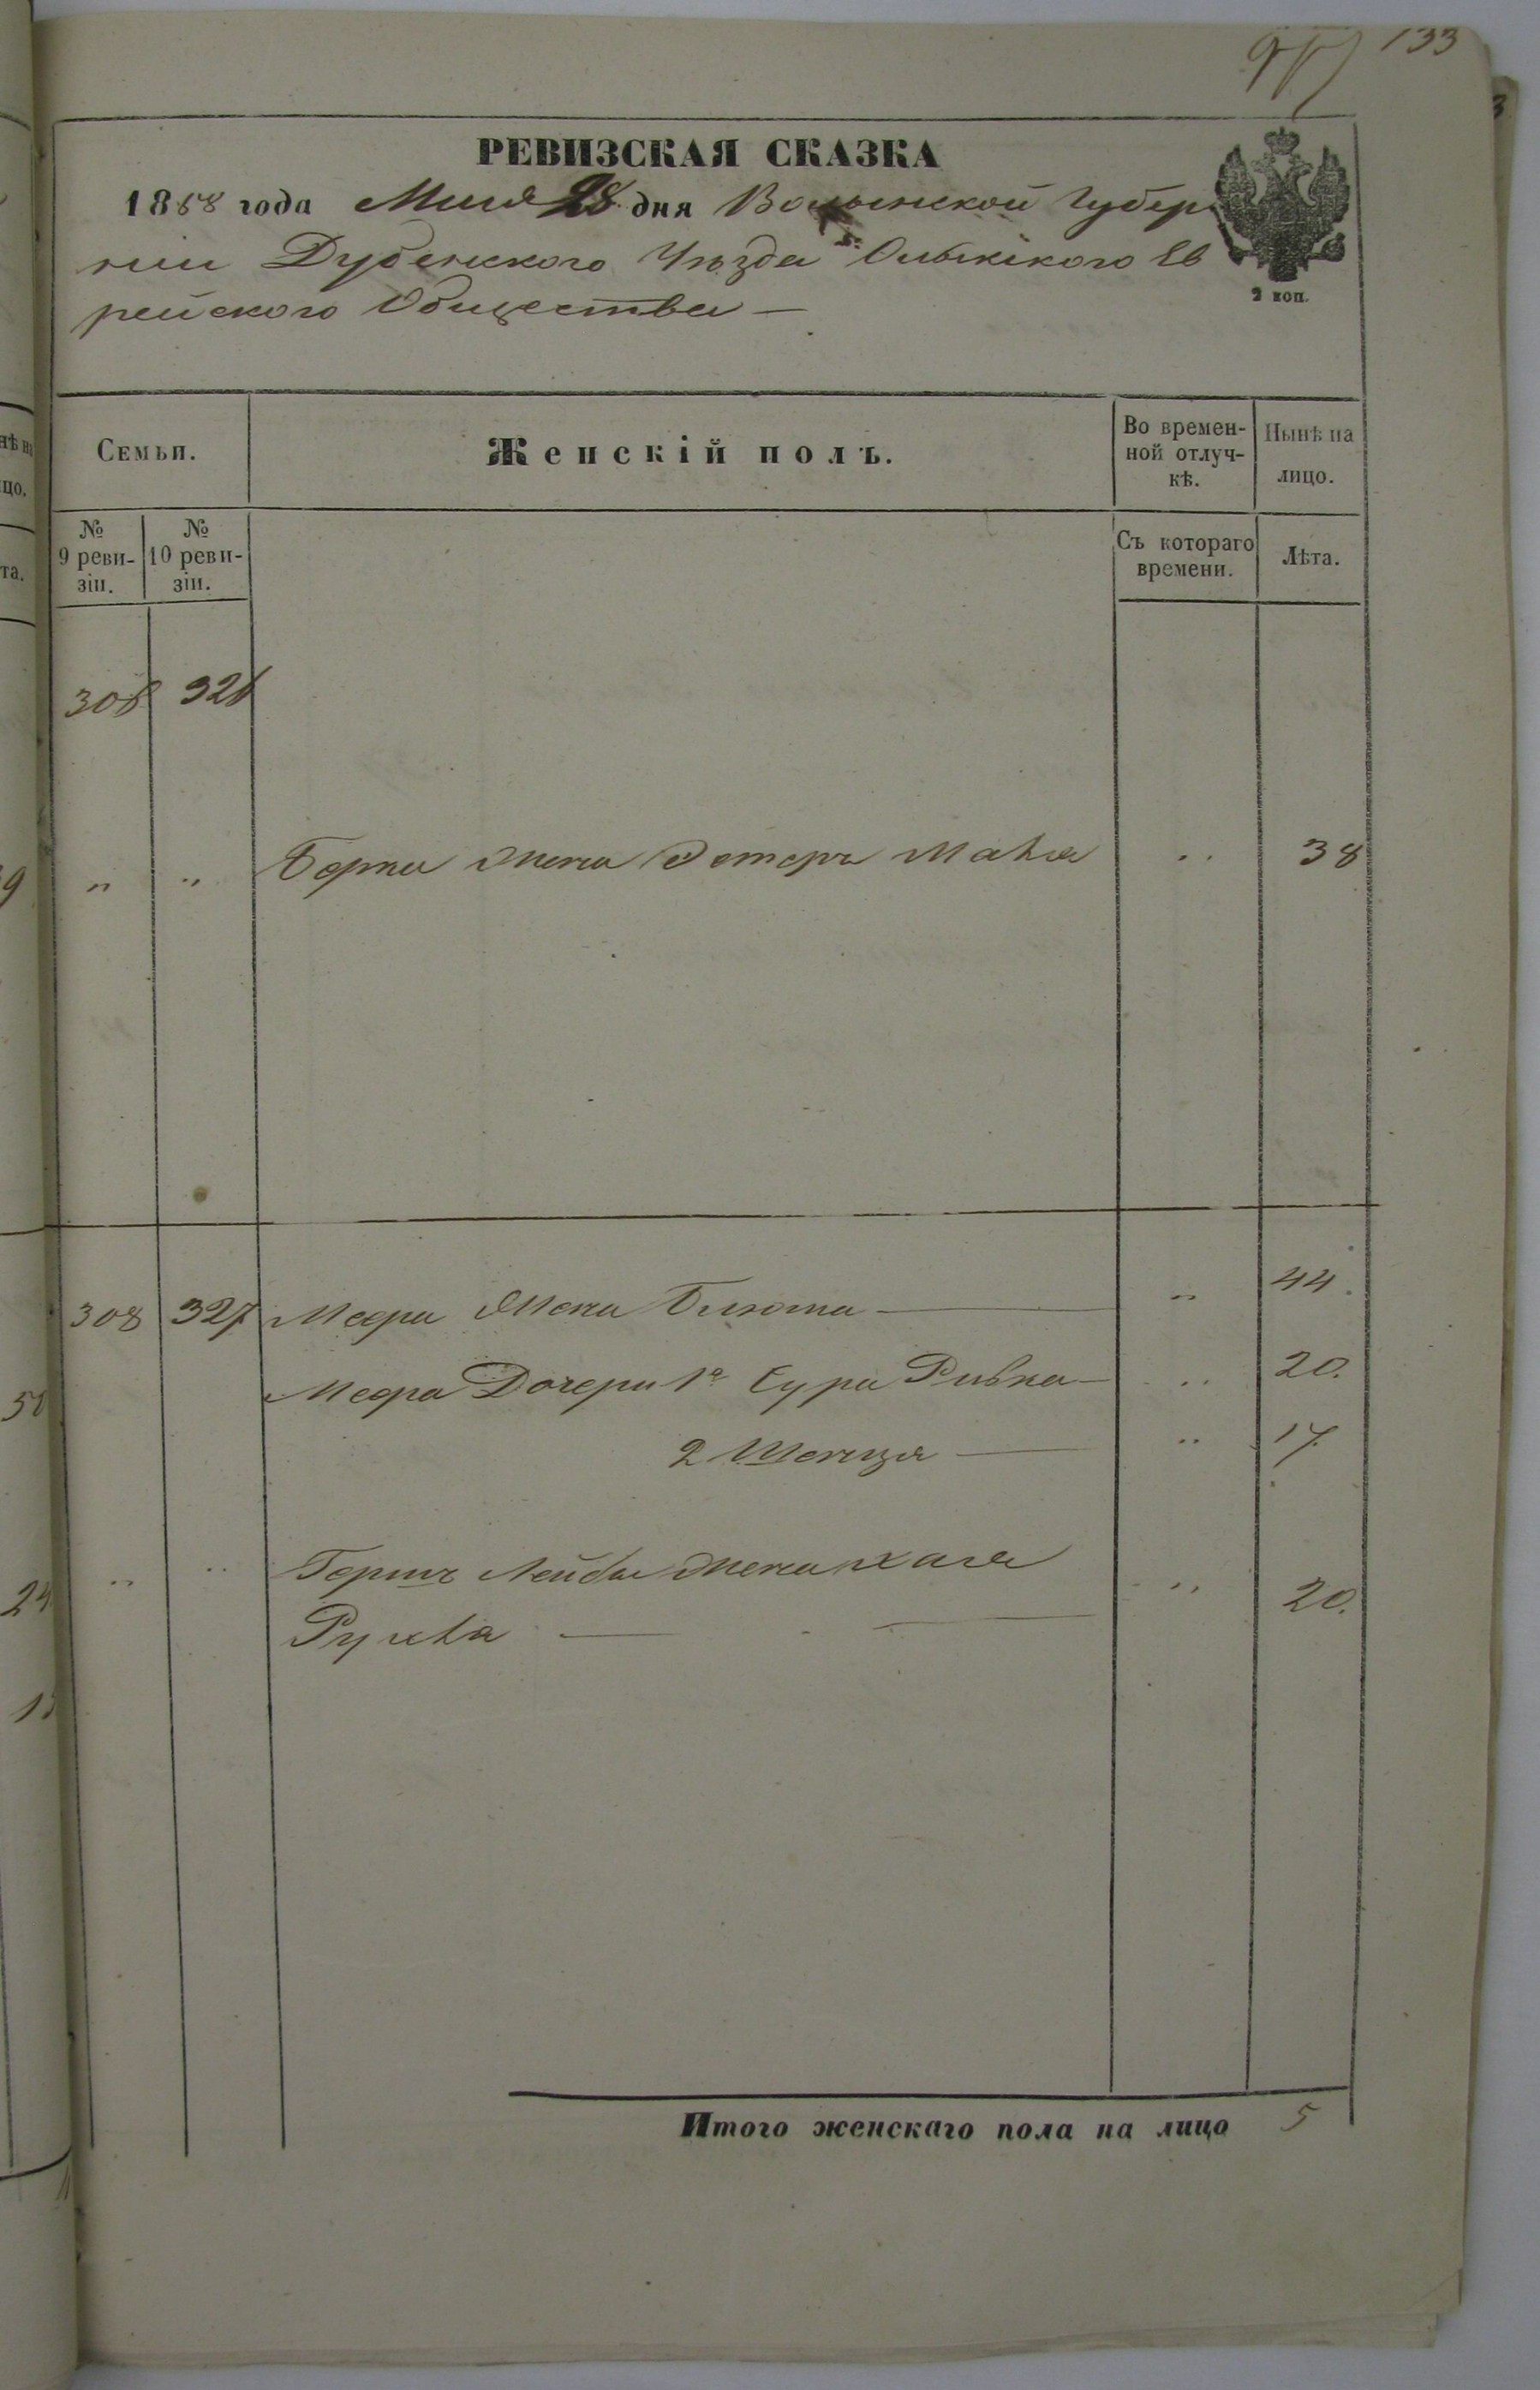 133
РЕВИЗСКАЯ СКАЗКА
1858 года Мая 28 дня Волынской Губер
нии Дубенского Уѣзда М. Олыкского Ев
рейского Общества —
2 коп.
Семьи.
Женскій полъ.
Во времен-
ной отлуч-
кѣ.
Нынѣ на
лицо.
№
9 реви-
зіи.
№
10 реви-
зіи.
Съ котораго
времени.
Лѣта.
308 326
" " Берка жена Эстеръ Маля " 38
308 327 Меера Жена Блюма — " 44.
Меера Дочери 1я Сура Ривка — " 20.
2 Шенця — " 17.
" " Гершъ Лейбы жена Хая " 20.
Рухля —
Итого женскаго пола на лицо 5